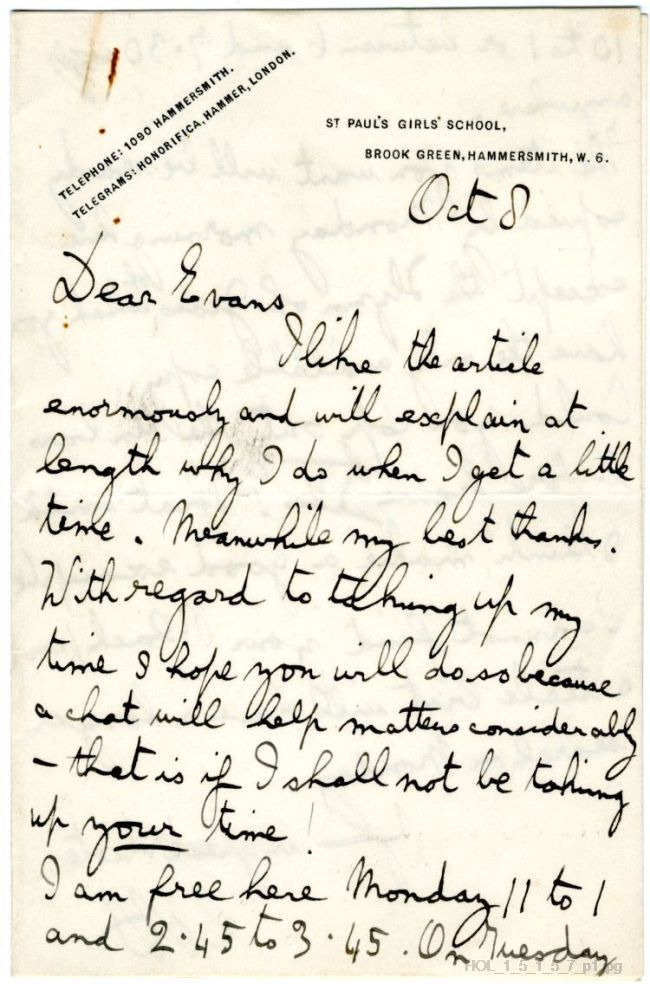 TELEPHONE: 1090 HAMMERSMITH.
TELEGRAMS: HONORIFICA, HAMMER, LONDON.
ST PAUL'S GIRLS' SCHOOL,
BROOK GREEN, HAMMERSMITH, W. 6.
Oct 8
Dear Evans
I like the article
enormously and will explain at
length why I do when I get a little
time. Meanwhile my best thanks.
With regard to taking up my
time I hope you will do so because
a chat will help matters considerably
- that is if I shall not be taking
up your time!
I am free here Monday 11 to 1
and 2.45 to 3.45. On Tuesday
HOL_1_5_1_5_7_p1.jpg